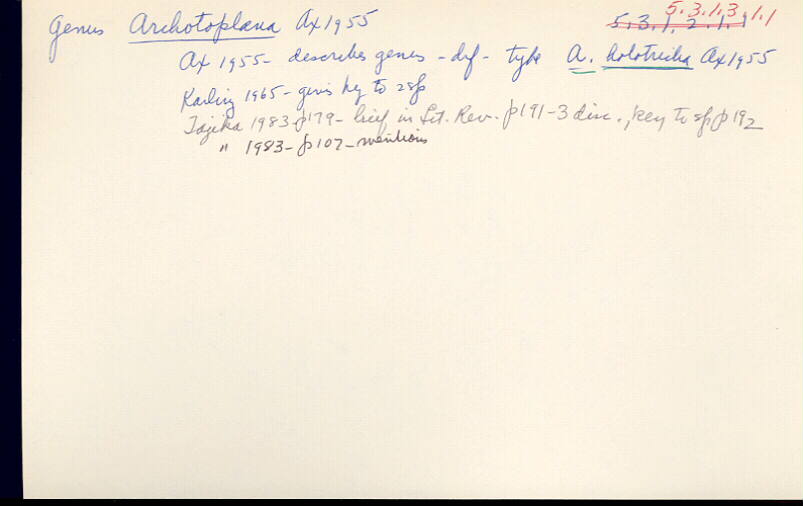 Genus Archotoplana Ax 1955
5.3.1.2.1.1
5.3.1.3.1.1
Ax 1955 - describes genus - def - type A. holotricha Ax 1955
Karling 1965 - gives key to 2 sp
Tajika 1983 p179 - brief in Lit. Rev. p191-3 disc., key to sp p192
" 1983 - p107 - mentions